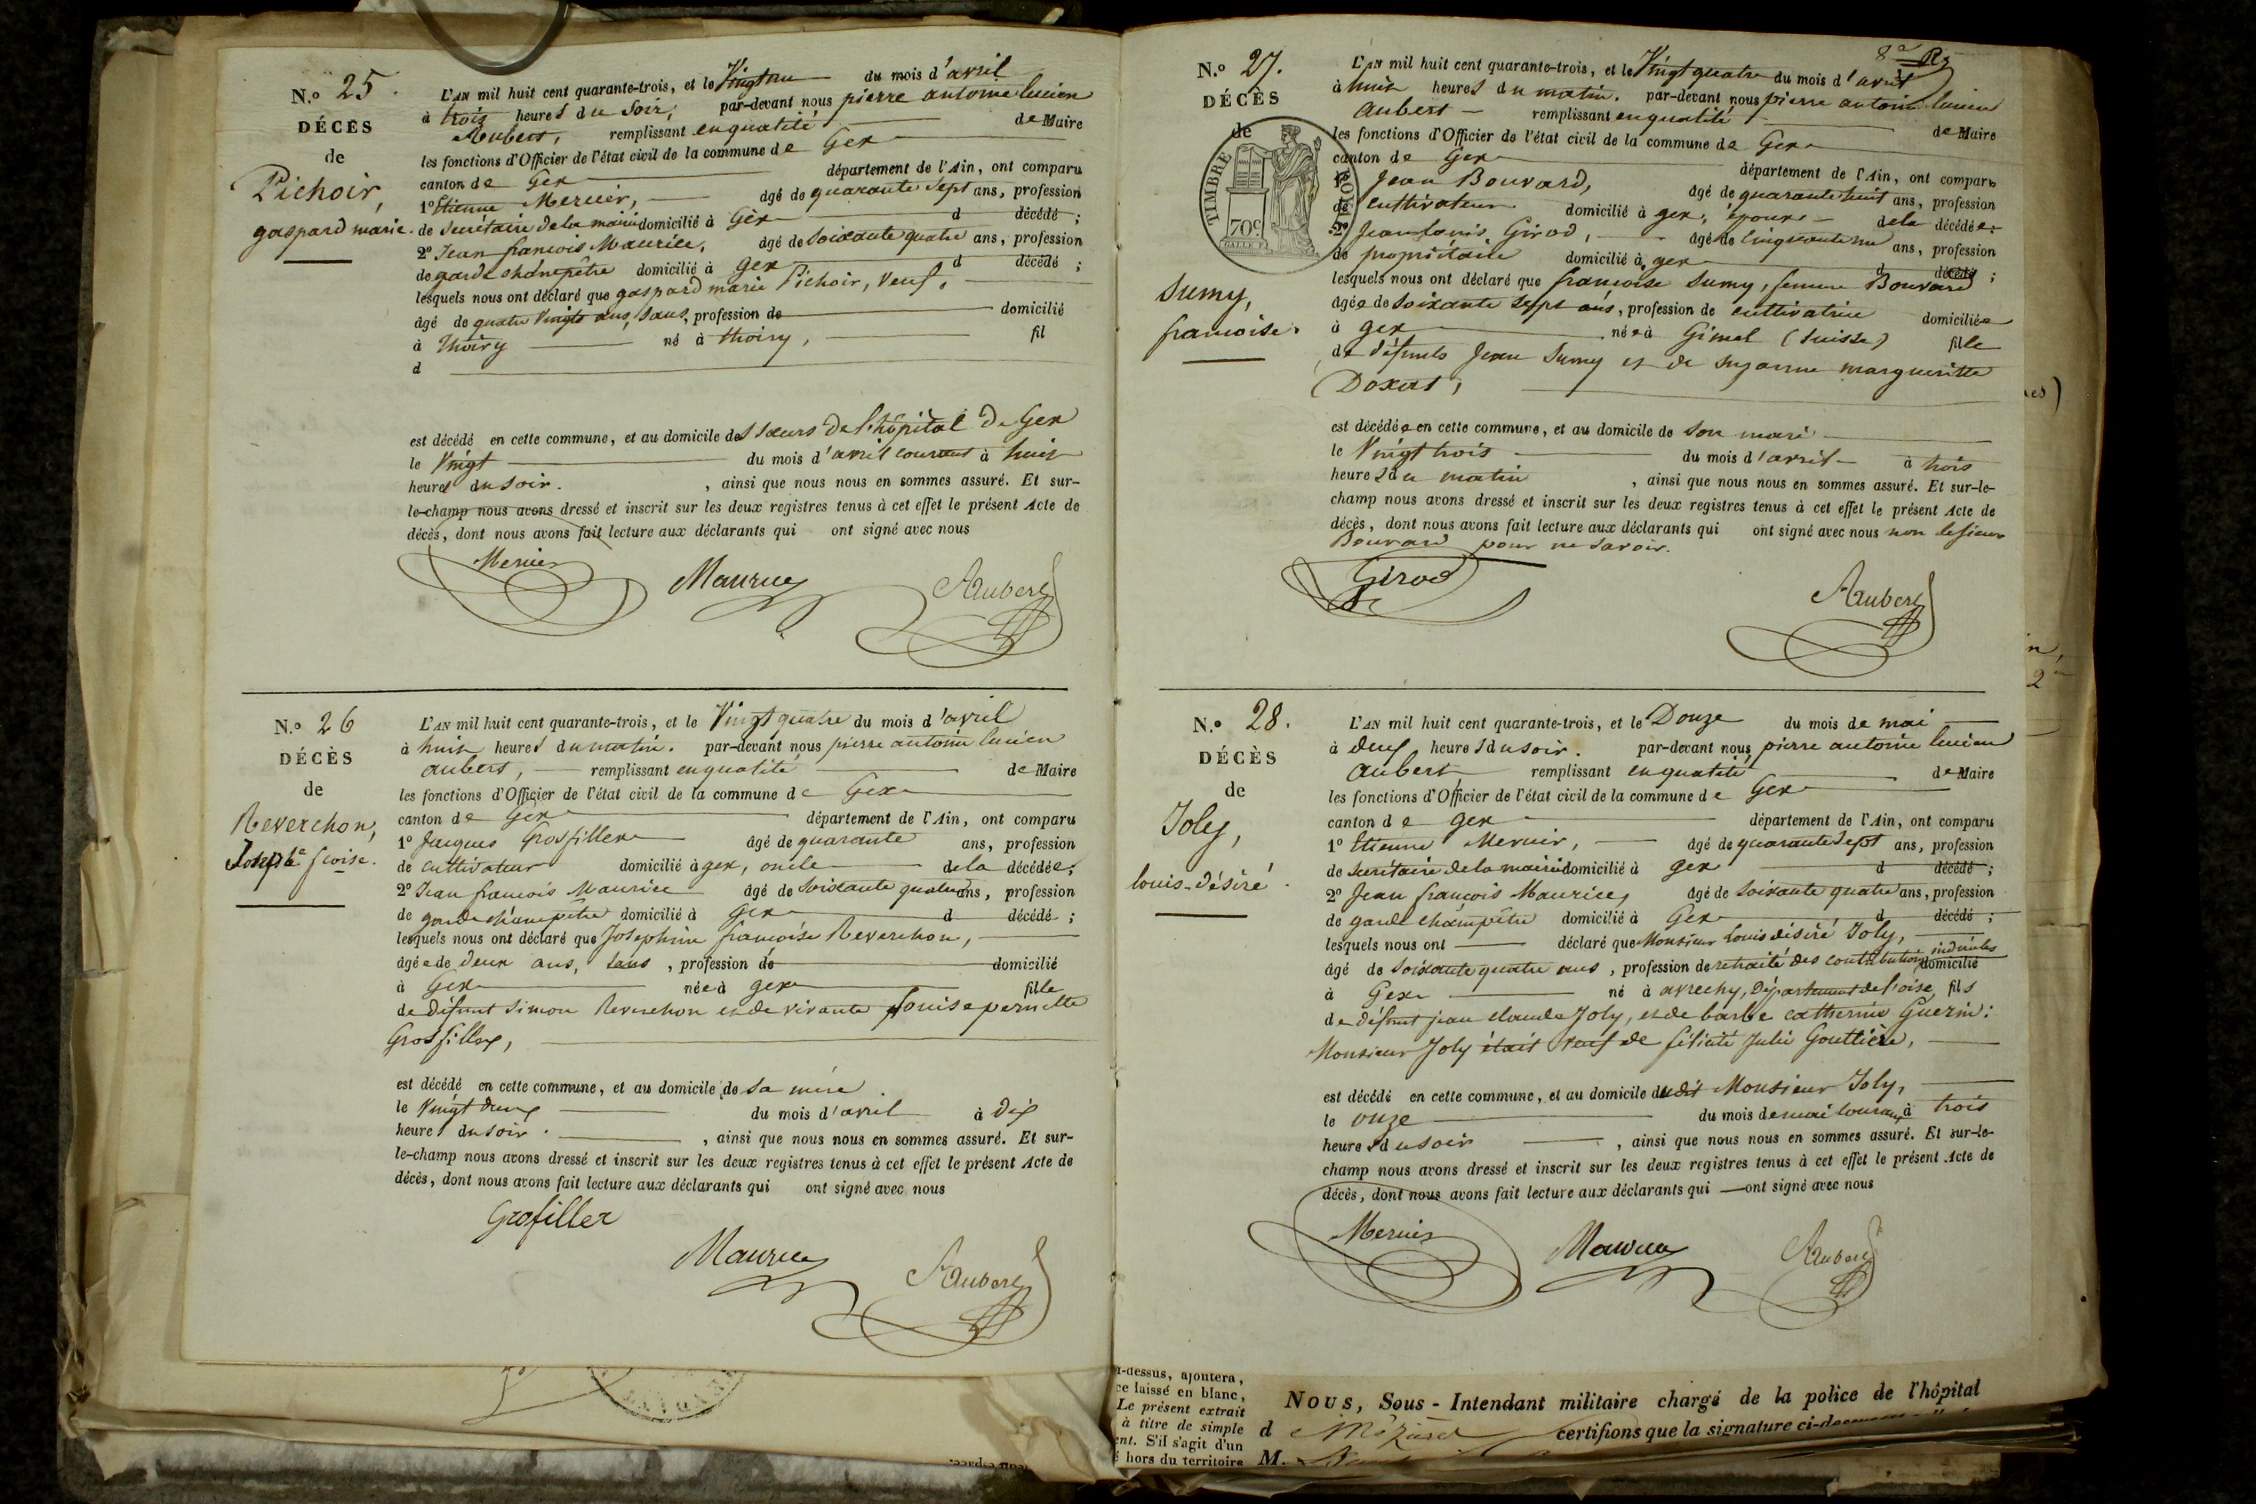 N.o 25.
DÉCÈS
de
Pichoir,
gaspard marie.
L'AN mil huit cent quarante-trois, et le Vingt un du mois d'avril
à trois heures du Soir, par-devant nous pierre antoine lucien
Aubert, remplissant en qualité de Maire
les fonctions d'Officier de l'état civil de la commune de Gex
canton de Gex département de l'Ain, ont comparu
1o Etienne Mercier, âgé de quarante Sept ans, profession
de Secrétaire de la mairie domicilié à Gex d décédé ;
2o Jean françois Maurice, âgé de Soixante quatre ans, profession
de garde champêtre domicilié à Gex d décédé ;
lesquels nous ont déclaré que gaspard marie Pichoir, Veuf,
âgé de quatre Vingts ans, Sans, profession de domicilié
à Thoiry né à thoiry, fil
d
est décédé en cette commune, et au domicile des Sœurs de l'hôpital de Gex
le Vingt du mois d'avril courant à huit
heures du Soir. , ainsi que nous nous en sommes assuré. Et sur-
le-champ nous avons dressé et inscrit sur les deux registres tenus à cet effet le présent Acte de
décès, dont nous avons fait lecture aux déclarants qui ont signé avec nous
Mercier Maurice Aubert
N.o 26
DÉCÈS
de
Reverchon,
Josephe fcoise.
L'AN mil huit cent quarante-trois, et le Vingt quatre du mois d'avril
à huit heures du matin. par-devant nous pierre antoine lucien
aubert, remplissant en qualité de Maire
les fonctions d'Officier de l'état civil de la commune de Gex
canton de Gex département de l'Ain, ont comparu
1o Jacques Grosfillex âgé de quarante ans, profession
de cultivateur domicilié à gex, oncle de la décédée;
2o Jean françois Maurice âgé de Soixante quatre ans, profession
de garde champêtre domicilié à Gex d décédé ;
lesquels nous ont déclaré que Josephine françoise Reverchon,
âgée de deux ans, Sans , profession de domicilié
à Gex née à gex fille
de défunt Simon Reverchon et de vivante Louise pernette
Grosfillex,
est décédé en cette commune, et au domicile de Sa mère
le Vingt deux du mois d'avril à dix
heures du soir. , ainsi que nous nous en sommes assuré. Et sur-
le-champ nous avons dressé et inscrit sur les deux registres tenus à cet effet le présent Acte de
décès, dont nous avons fait lecture aux déclarants qui ont signé avec nous
Grosfillex
Maurice Aubert
8e
N.o 27.
DÉCÈS
de
TIMBRE ROYAL
70c
Sumy,
francoise.
L'AN mil huit cent quarante-trois, et le Vingt quatre du mois d'avril
à huit heures du matin. par-devant nous pierre antoine lucien
aubert remplissant en qualité de Maire
les fonctions d'Officier de l'état civil de la commune de Gex
canton de Gex département de l'Ain, ont comparu
1o Jean Bouvard, âgé de quarante huit ans, profession
de cultivateur domicilié à gex, époux de la décédée;
2o Jean louis Girod, âgé de cinquante un ans, profession
de propriétaire domicilié à gex d décédé ;
lesquels nous ont déclaré que françoise Sumy, femme Bouvard
âgée de Soixante Sept ans, profession de cultivatrice domiciliée
à gex née à Gimel (Suisse) fille
de défunts Jean Sumy et de Suzanne margueritte
Doxat,
est décédée en cette commune, et au domicile de son mari
le Vingt trois du mois d'avril à trois
heures du matin , ainsi que nous nous en sommes assuré. Et sur-le-
champ nous avons dressé et inscrit sur les deux registres tenus à cet effet le présent Acte de
décès, dont nous avons fait lecture aux déclarants qui ont signé avec nous non le sieur
Bouvard pour ne savoir.
Girod Aubert
N.o 28.
DÉCÈS
de
Joly,
louis-désiré.
L'AN mil huit cent quarante-trois, et le Douze du mois de mai
à deux heures du soir. par-devant nous pierre antoine lucien
Aubert remplissant en qualité de Maire
les fonctions d'Officier de l'état civil de la commune de Gex
canton de gex département de l'Ain, ont comparu
1o Etienne Mercier, âgé de quarante Sept ans, profession
de Secrétaire de la mairie domicilié à gex d décédé ;
2o Jean françois Maurice, âgé de Soixante quatre ans, profession
de garde champêtre domicilié à Gex d décédé ;
lesquels nous ont déclaré que Monsieur Louis désiré Joly,
âgé de Soixante quatre ans , profession de retraité des contributions indirectes domicilié
à Gex né à avrechy, Département de l'oise, fils
de défunt jean claude Joly, et de barbe catherine Guerin:
Monsieur Joly était veuf de félicité Julie Gouttière,
est décédé en cette commune, et au domicile dudit Monsieur Joly,
le onze du mois de mai courant, à trois
heures du soir , ainsi que nous nous en sommes assuré. Et sur-le-
champ nous avons dressé et inscrit sur les deux registres tenus à cet effet le présent Acte de
décès, dont nous avons fait lecture aux déclarants qui ont signé avec nous
Mercier Maurice Aubert
i-dessus, ajoutera,
ce laissé en blanc,
Le présent extrait
à titre de simple
ent. S'il s'agit d'un
é hors du territoire
NOUS, Sous-Intendant militaire chargé de la police de l'hôpital
d certifions que la signature ci-dessus
M.